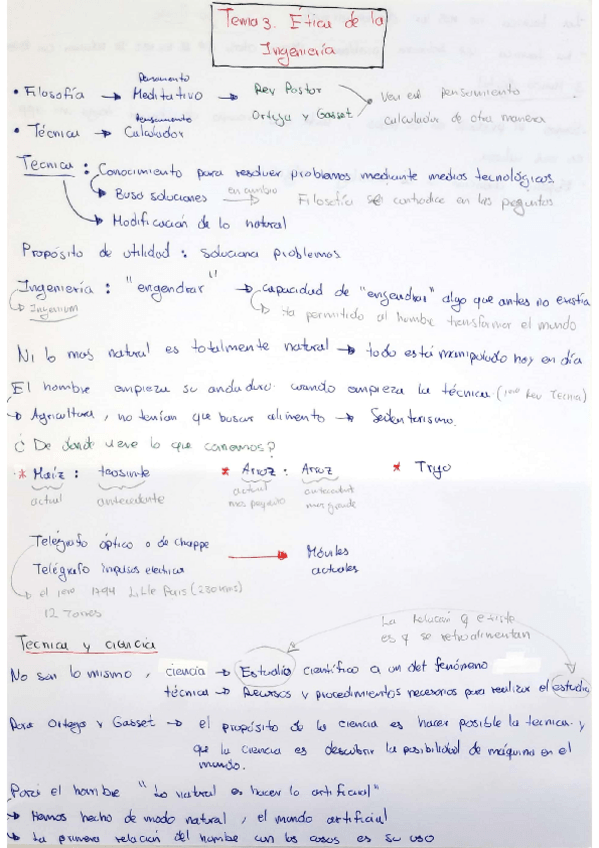 Tema 3. Ética de la
Ingeniería
• Filosofía → Pensamiento Meditativo → Rey Pastor
Ortega y Gasset
Ven el pensamiento
calculador de otra manera
• Técnica → Pensamiento Calculador
Técnica : Conocimiento para resolver problemas mediante medios tecnológicos.
Busa soluciones en cambio → Filosofía se contradice en las preguntas
→ Modificación de lo natural
Propósito de utilidad : soluciona problemas
Ingeniería : "engendrar" → capacidad de "engendrar" algo que antes no existía
Ingenium
→ Ha permitido al hombre transformar el mundo
Ni lo mas natural es totalmente natural → todo está manipulado hoy en día
El hombre empieza su andadura cuando empieza la técnica (1era Rev Tecnica)
→ Agricultura, no tenían que buscar alimento → Sedentarismo.
¿De donde viene lo que comemos?
* Maíz : teosinte * Arroz : Arroz * Trigo
actual antecedente actual mas pequeño antecedente mas grande
Telégrafo óptico o de chappe
Telégrafo impulsos electricos
→ Móviles
actuales
→ el 1ero 1794 Lille Paris (230 kms)
12 Torres
La relación q existe
es q se retroalimentan
Tecnica y ciencia
No son lo mismo, ciencia → Estudio científico a un det fenómeno
técnica → Recursos y procedimientos necesarios para realizar el estudio
Para Ortega y Gasset → el propósito de la ciencia es hacer posible la tecnica y
que la ciencia es descubrir la posibilidad de máquina en el
mundo.
Para el hombre "Lo natural es hacer lo artificial"
→ Hemos hecho de modo natural, el mundo artificial
→ La primera relación del hombre con las cosas es su uso